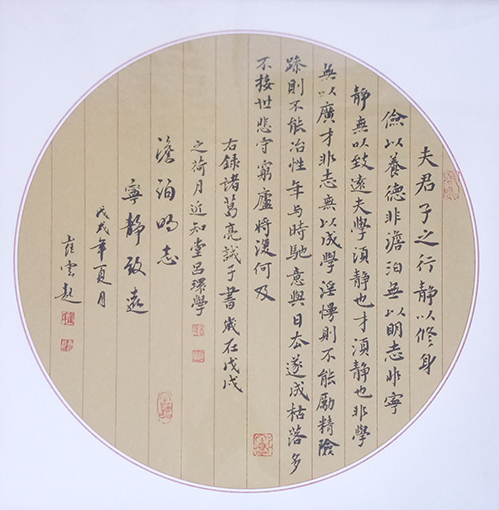 夫君子之行静以修身
儉以養德非澹泊無以明志非寧
静無以致遠夫學須静也才須静也非學
無以廣才非志無以成學淫慢則不能勵精險
躁則不能冶性年与時馳意與日去遂成枯落多
不接世悲守窮廬將復何及
右録諸葛亮誡子書歲在戊戌
之荷月近知堂吕學
澹泊明志
寧静致遠
戊戌年夏月
雲